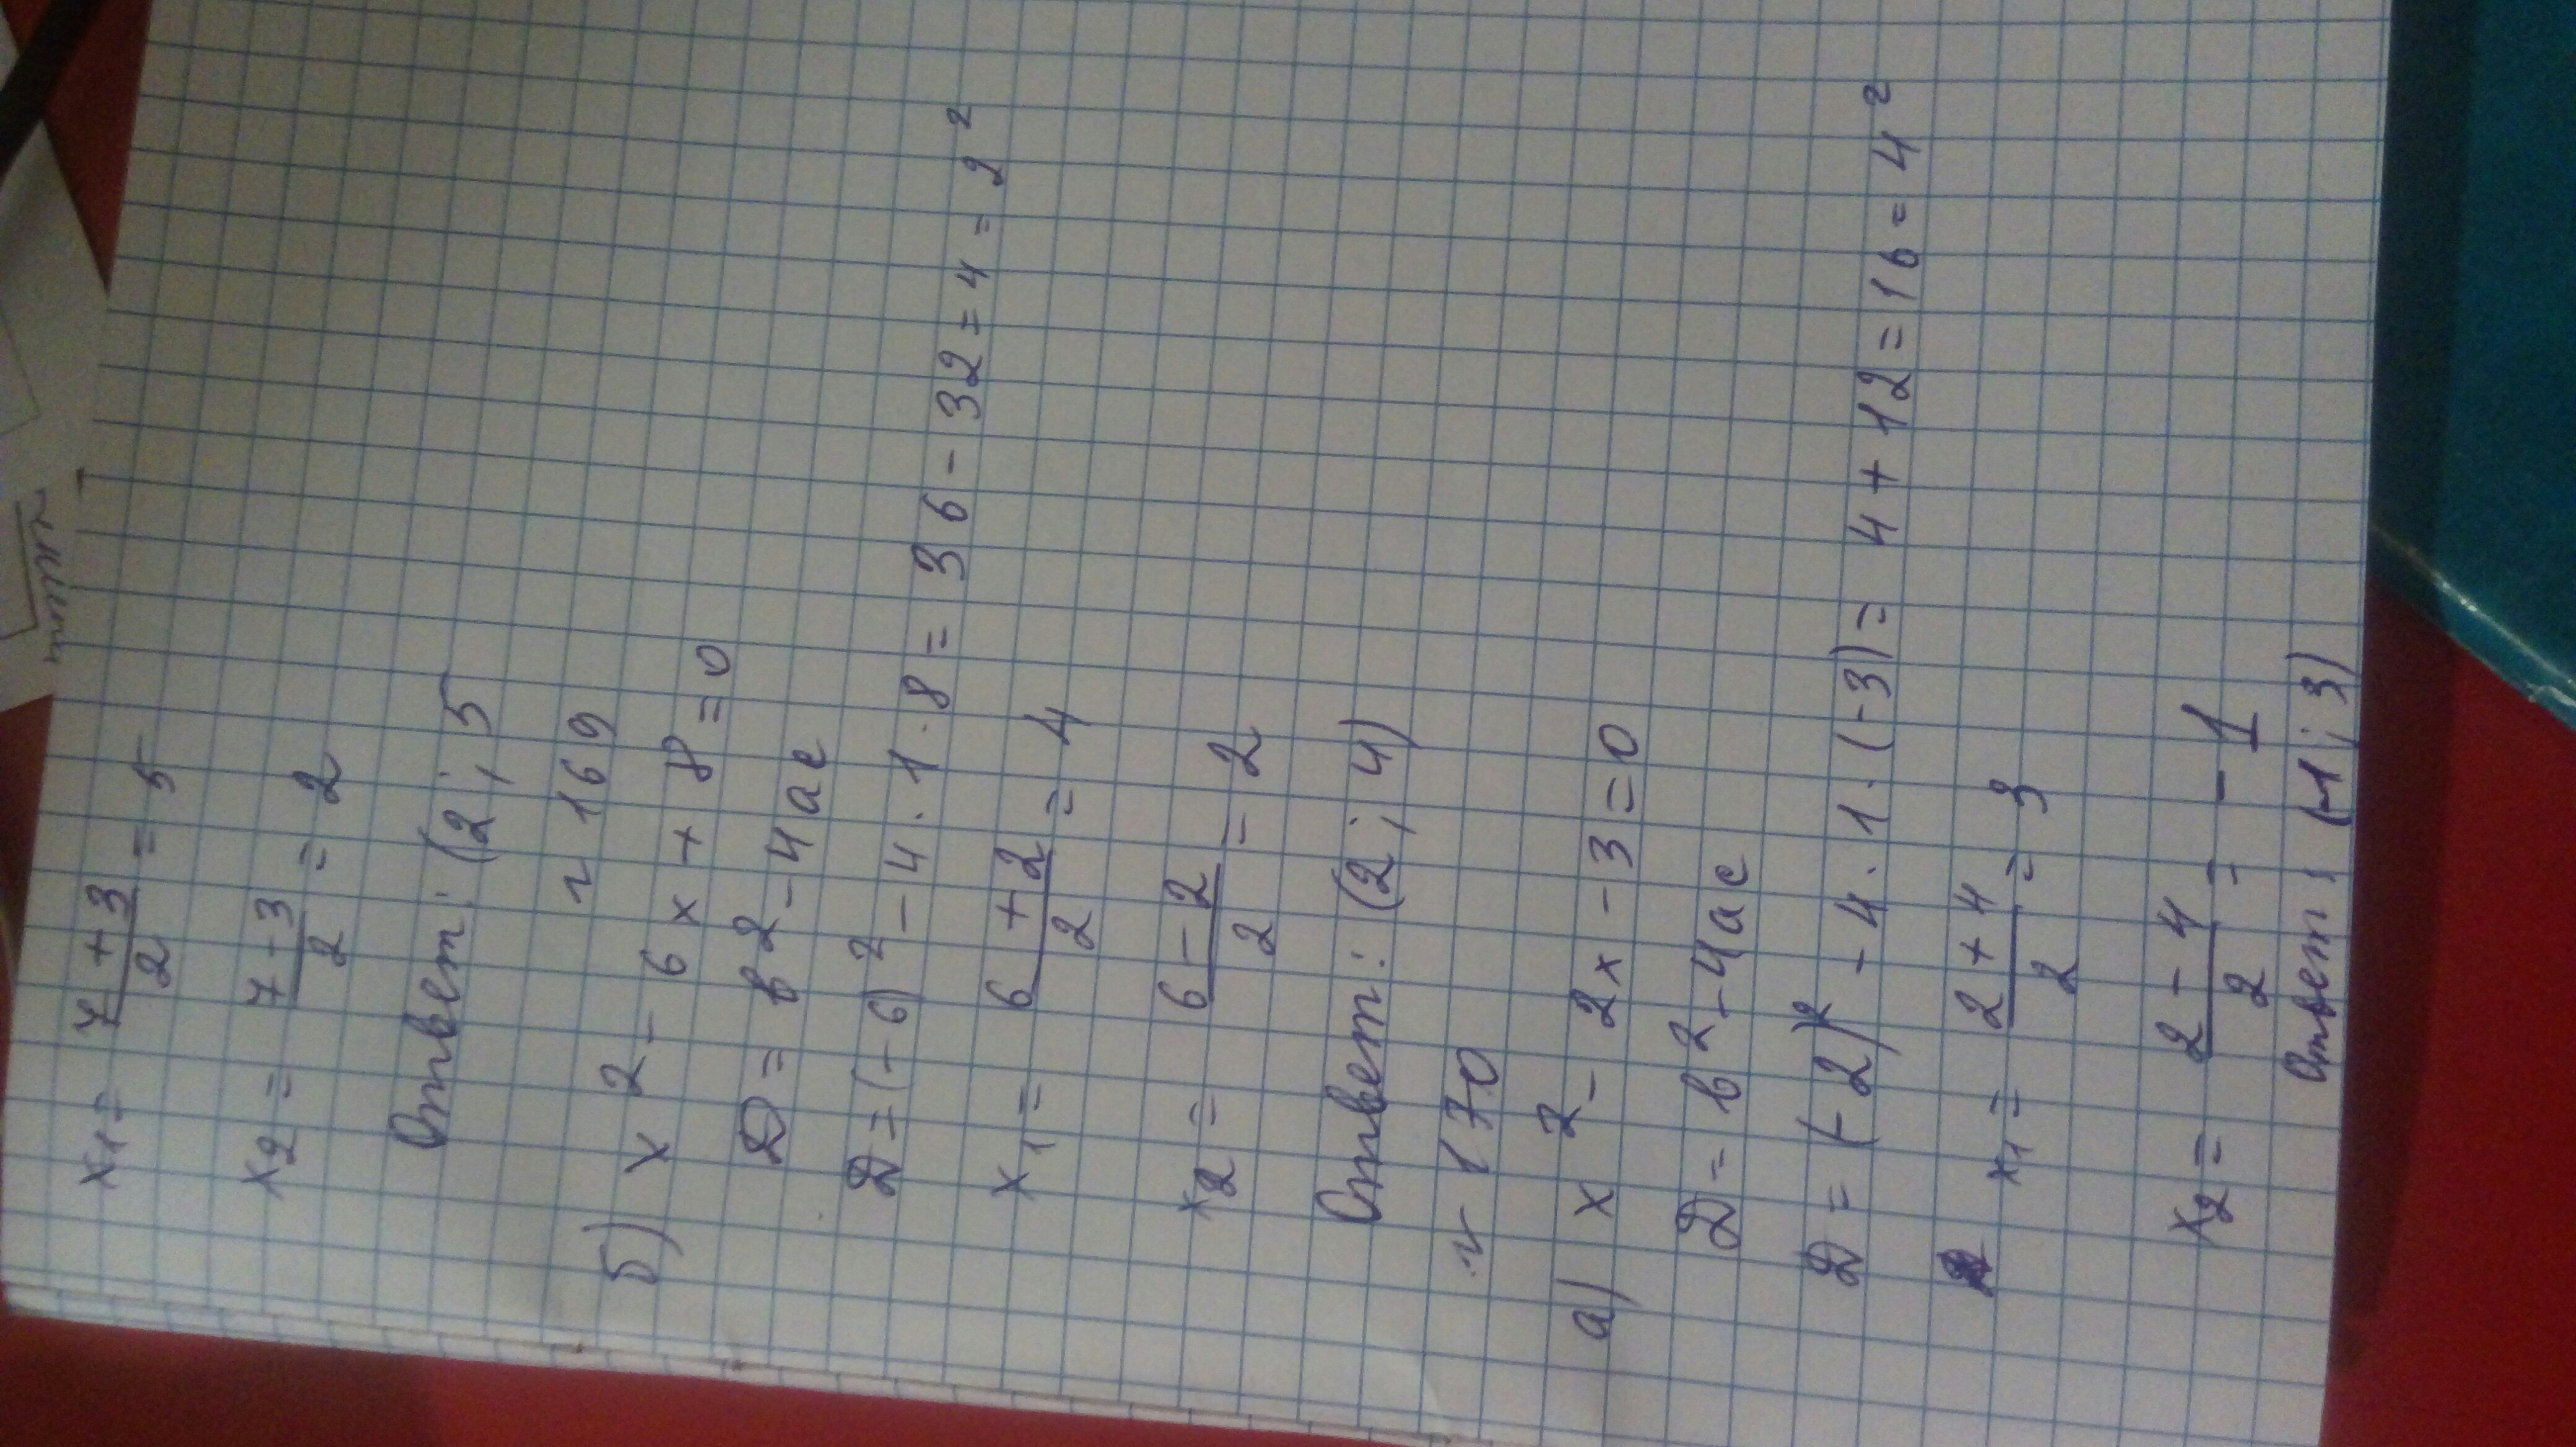 x₁ = (7+3)/2 = 5
x₂ = (7-3)/2 = 2
Ответ: (2; 5
~ 169
б) x² - 6x + 8 = 0
D = в² - 4ас
D = (-6)² - 4·1·8 = 36 - 32 = 4 = 2²
x₁ = (6+2)/2 = 4
x₂ = (6-2)/2 = 2
Ответ: (2; 4)
~ 170
а) x² - 2x - 3 = 0
D = в² - 4ас
D = (-2)² - 4·1·(-3) = 4 + 12 = 16 = 4²
x₁ = (2+4)/2 = 3
x₂ = (2-4)/2 = -1
Ответ: (-1; 3)